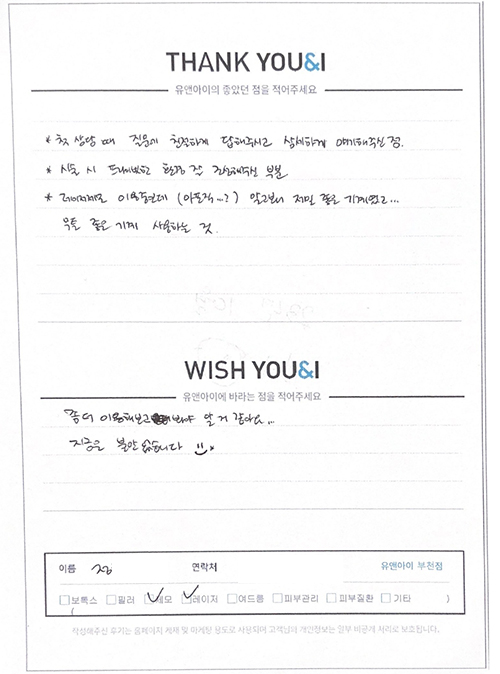 THANK YOU&I
유앤아이의 좋았던 점을 적어주세요
* 첫 상담 때 질문에 친절하게 답해주시고 상세하게 얘기해주신 점.
* 시술 시 프라이빗한 환경 잘 조성해주신 부분
* 레이저제모 이용중인데 (아포지...?) 알고보니 제일 좋은 기계였고...
무튼 좋은 기계 사용하는 것.
WISH YOU&I
유앤아이에 바라는 점을 적어주세요
좀 더 이용해보고 봐야 알 거 같아요...
지금은 불만 없습니다
이름 정 연락처 유앤아이 부천점
보톡스 필러 제모 레이저 여드름 피부관리 피부질환 기타 ( )
작성해주신 후기는 홈페이지 게재 및 마케팅 용도로 사용되며 고객님의 개인정보는 일부 비공개 처리로 보호됩니다.